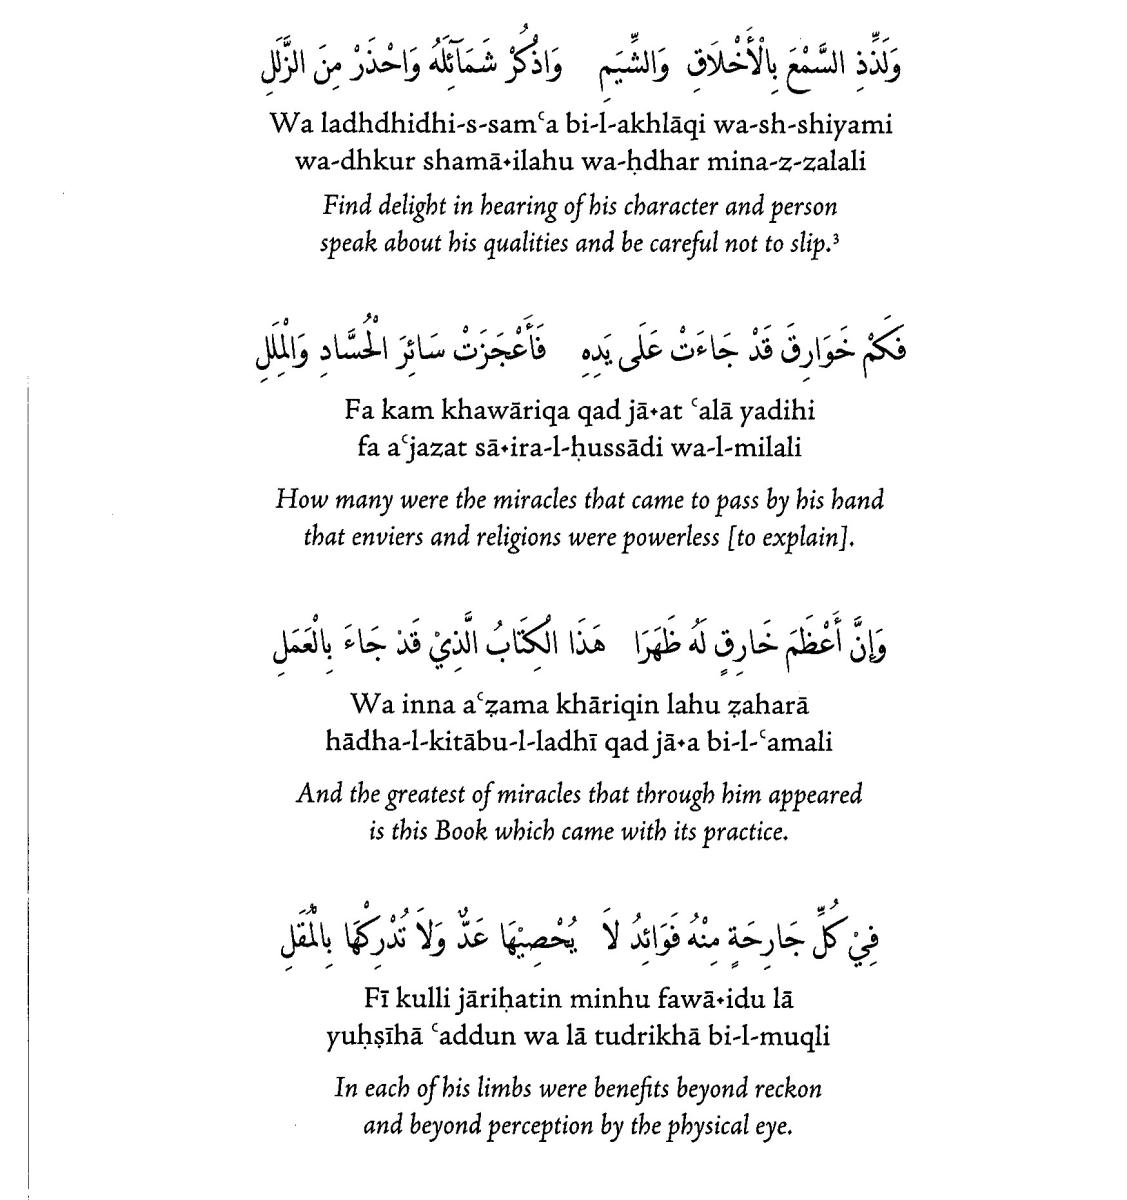 وَلَذِّذِ السَّمْعَ بِالْأَخْلَاقِ وَالشِّيَمِ وَاذْكُرْ شَمَآئِلَهُ وَاحْذَرْ مِنَ الزَّلَلِ
Wa ladhdhidhi-s-samʿa bi-l-akhlāqi wa-sh-shiyami
wa-dhkur shamā˖ilahu wa-ḥdhar mina-z-zalali
Find delight in hearing of his character and person
speak about his qualities and be careful not to slip.³
فَكَمْ خَوَارِقَ قَدْ جَاءَتْ عَلَى يَدِهِ فَأَعْجَزَتْ سَائِرَ الْحُسَّادِ وَالْمِلَلِ
Fa kam khawāriqa qad jā˖at ʿalā yadihi
fa aʿjazat sā˖ira-l-ḥussādi wa-l-milali
How many were the miracles that came to pass by his hand
that enviers and religions were powerless [to explain].
وَإِنَّ أَعْظَمَ خَارِقٍ لَهُ ظَهَرَا هَذَا الْكِتَابُ الَّذِيْ قَدْ جَاءَ بِالْعَمَلِ
Wa inna aʿẓama khāriqin lahu ẓaharā
hādha-l-kitābu-l-ladhī qad jā˖a bi-l-ʿamali
And the greatest of miracles that through him appeared
is this Book which came with its practice.
فِيْ كُلِّ جَارِحَةٍ مِنْهُ فَوَائِدُ لَا يُحْصِيْهَا عَدٌّ وَلَا تُدْرِكْهَا بِالْمُقَلِ
Fī kulli jāriḥatin minhu fawā˖idu lā
yuḥṣīhā ʿaddun wa lā tudrikhā bi-l-muqli
In each of his limbs were benefits beyond reckon
and beyond perception by the physical eye.